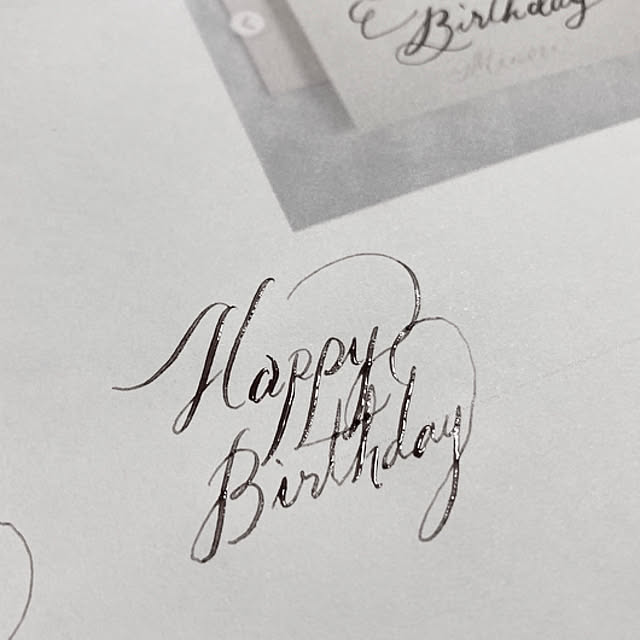 Birthday
Happy
Birthday